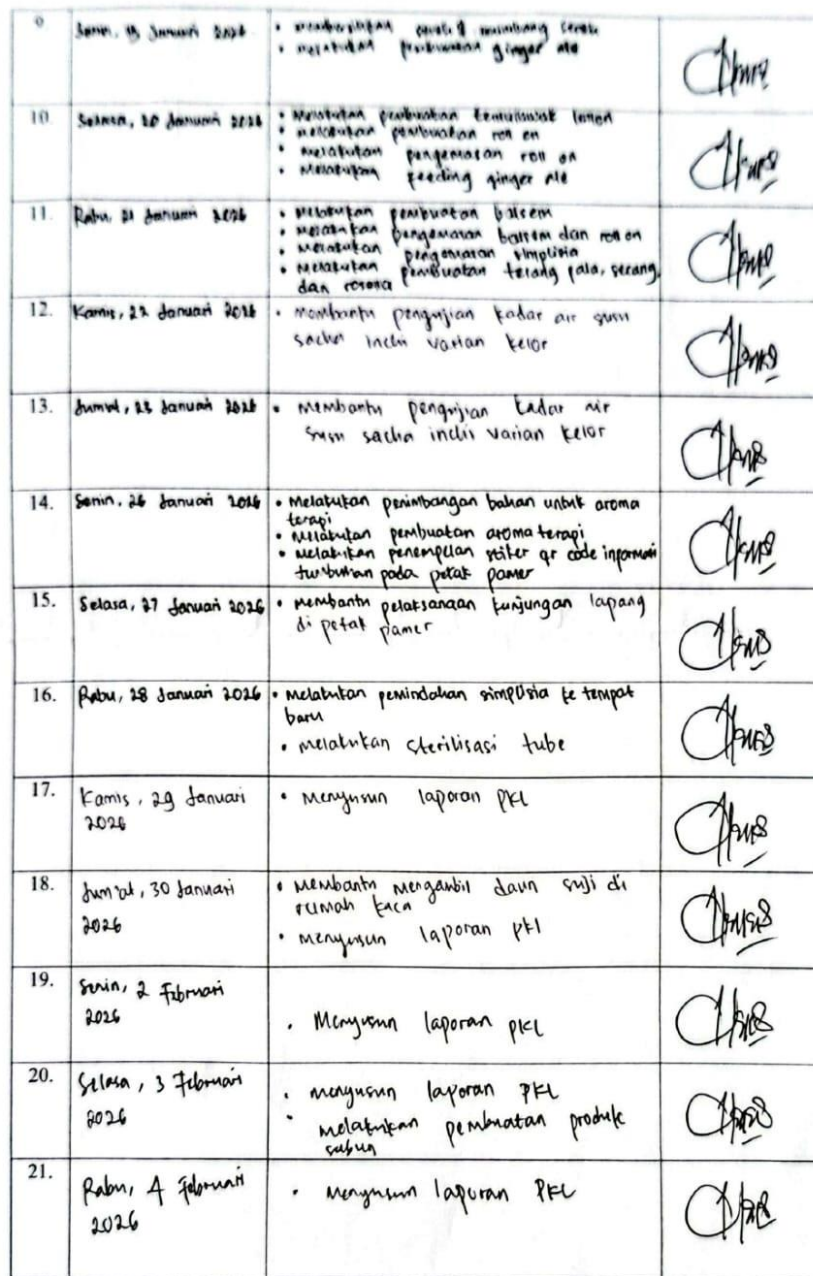 9. Senin, 19 Januari 2026
• membersihkan menimbang sereh
• melakukan pembuatan ginger ale
10. Selasa, 20 Januari 2026
• Melakukan pembuatan temulawak lemon
• melakukan pembuatan roll on
• melakukan pengemasan roll on
• Melakukan feeding ginger ale
11. Rabu 21 Januari 2026
• melakukan pembuatan balsem
• melakukan pengemasan balsem dan roll on
• melakukan pengemasan simplisia
• Melakukan pembuatan pala, secang,
dan
12. Kamis, 22 Januari 2026
• membantu pengujian kadar air susu
sacha inchi varian kelor
13. Jumat, 23 Januari 2026
• membantu pengujian kadar air
susu sacha inchi varian kelor
14. Senin, 26 Januari 2026
• Melakukan penimbangan bahan untuk aroma
terapi
• Melakukan pembuatan aroma terapi
• Melakukan penempelan stiker qr code informasi
tumbuhan pada petak pamer
15. Selasa, 27 Januari 2026
• membantu pelaksanaan kunjungan lapang
di petak pamer
16. Rabu, 28 Januari 2026
• Melakukan pemindahan simplisia ke tempat
baru
• melakukan sterilisasi tube
17. Kamis, 29 Januari
2026
• Menyusun laporan PKL
18. Jum'at, 30 Januari
2026
• Membantu mengambil daun suji di
rumah kaca
• menyusun laporan PKL
19. Senin, 2 Februari
2026
• Menyusun laporan PKL
20. Selasa, 3 Februari
2026
• menyusun laporan PKL
• melakukan pembuatan produk
sabun
21. Rabu, 4 Februari
2026
• Menyusun laporan PKL